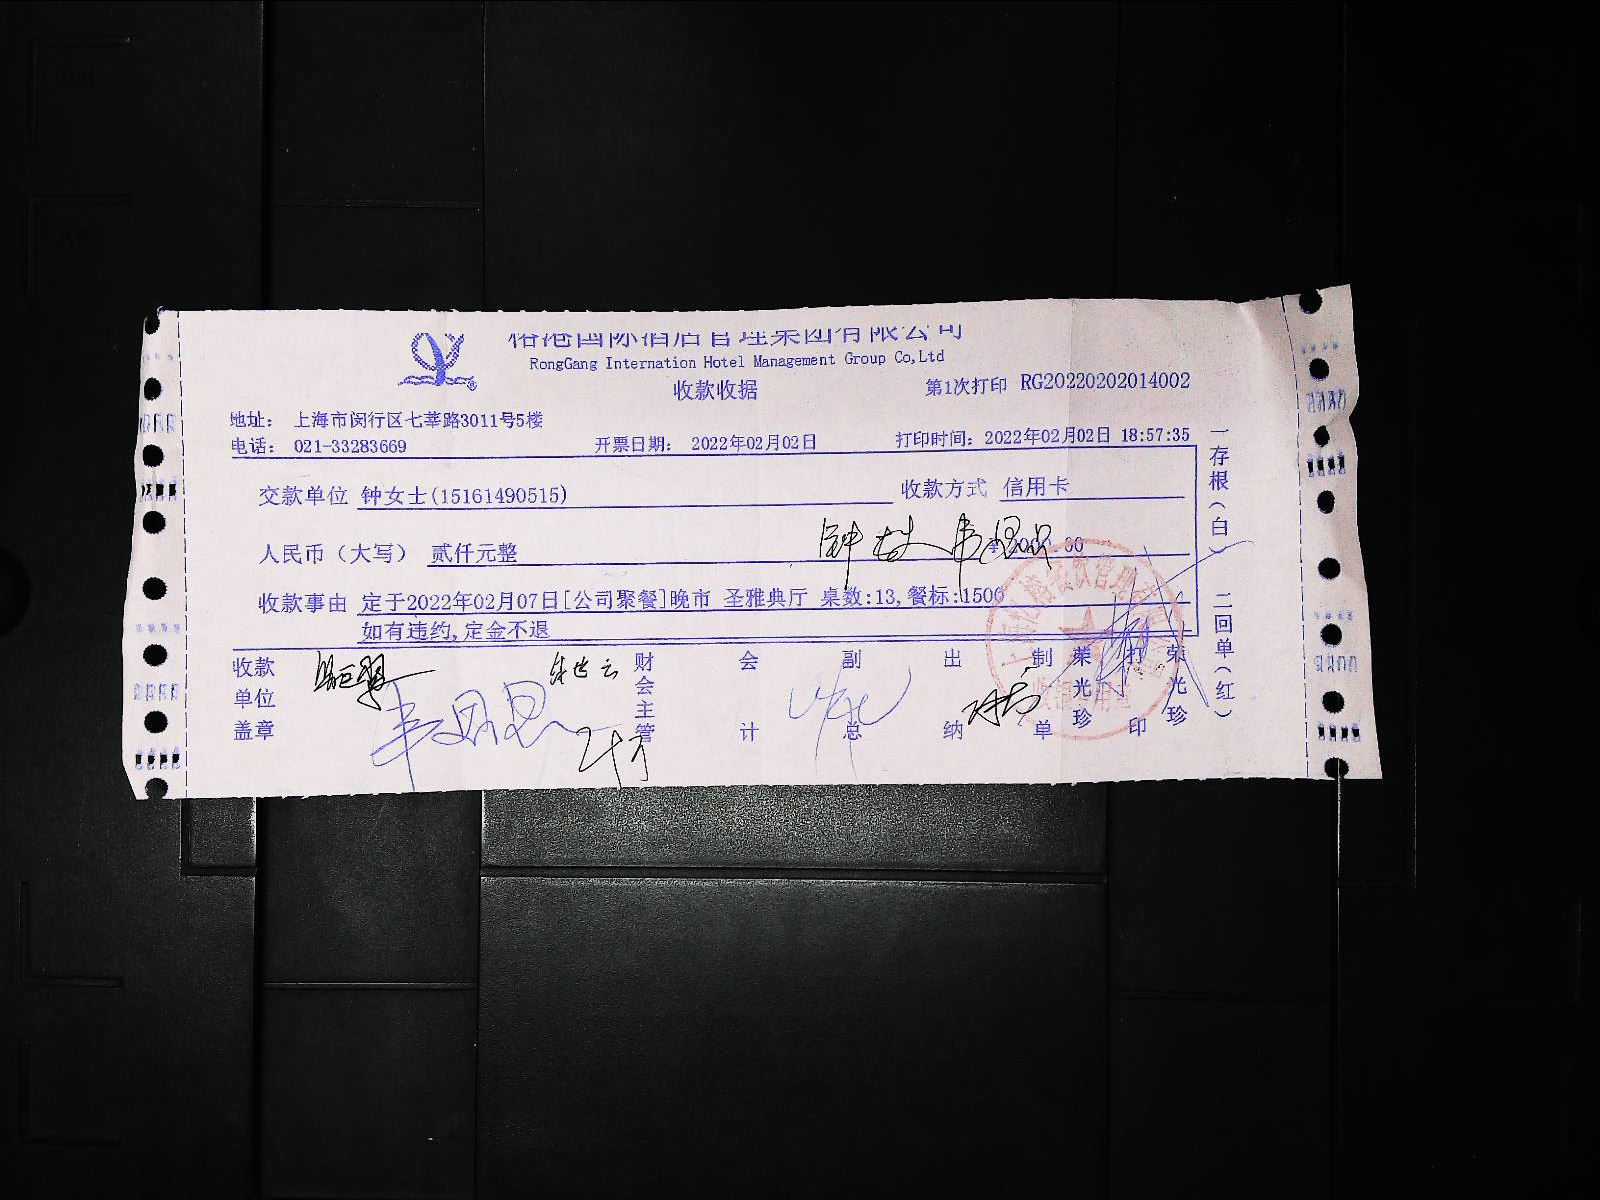 港国际酒店管理集团有限公司
RongGang Internation Hotel Management Group Co,Ltd
收款收据
第1次打印 RG20220202014002
地址： 上海市闵行区七莘路3011号5楼
电话： 021-33283669 开票日期： 2022年02月02日 打印时间：2022年02月02日 18:57:35
交款单位 钟女士(15161490515) 收款方式 信用卡
人民币（大写） 贰仟元整 ¥2000.00
收款事由 定于2022年02月07日[公司聚餐]晚市 圣雅典厅 桌数:13,餐标:1500
如有违约,定金不退
收款单位盖章 财会主管 会计 副总 出纳 制单 荣光珍 打印 荣光珍
一存根（白） 二回单（红）